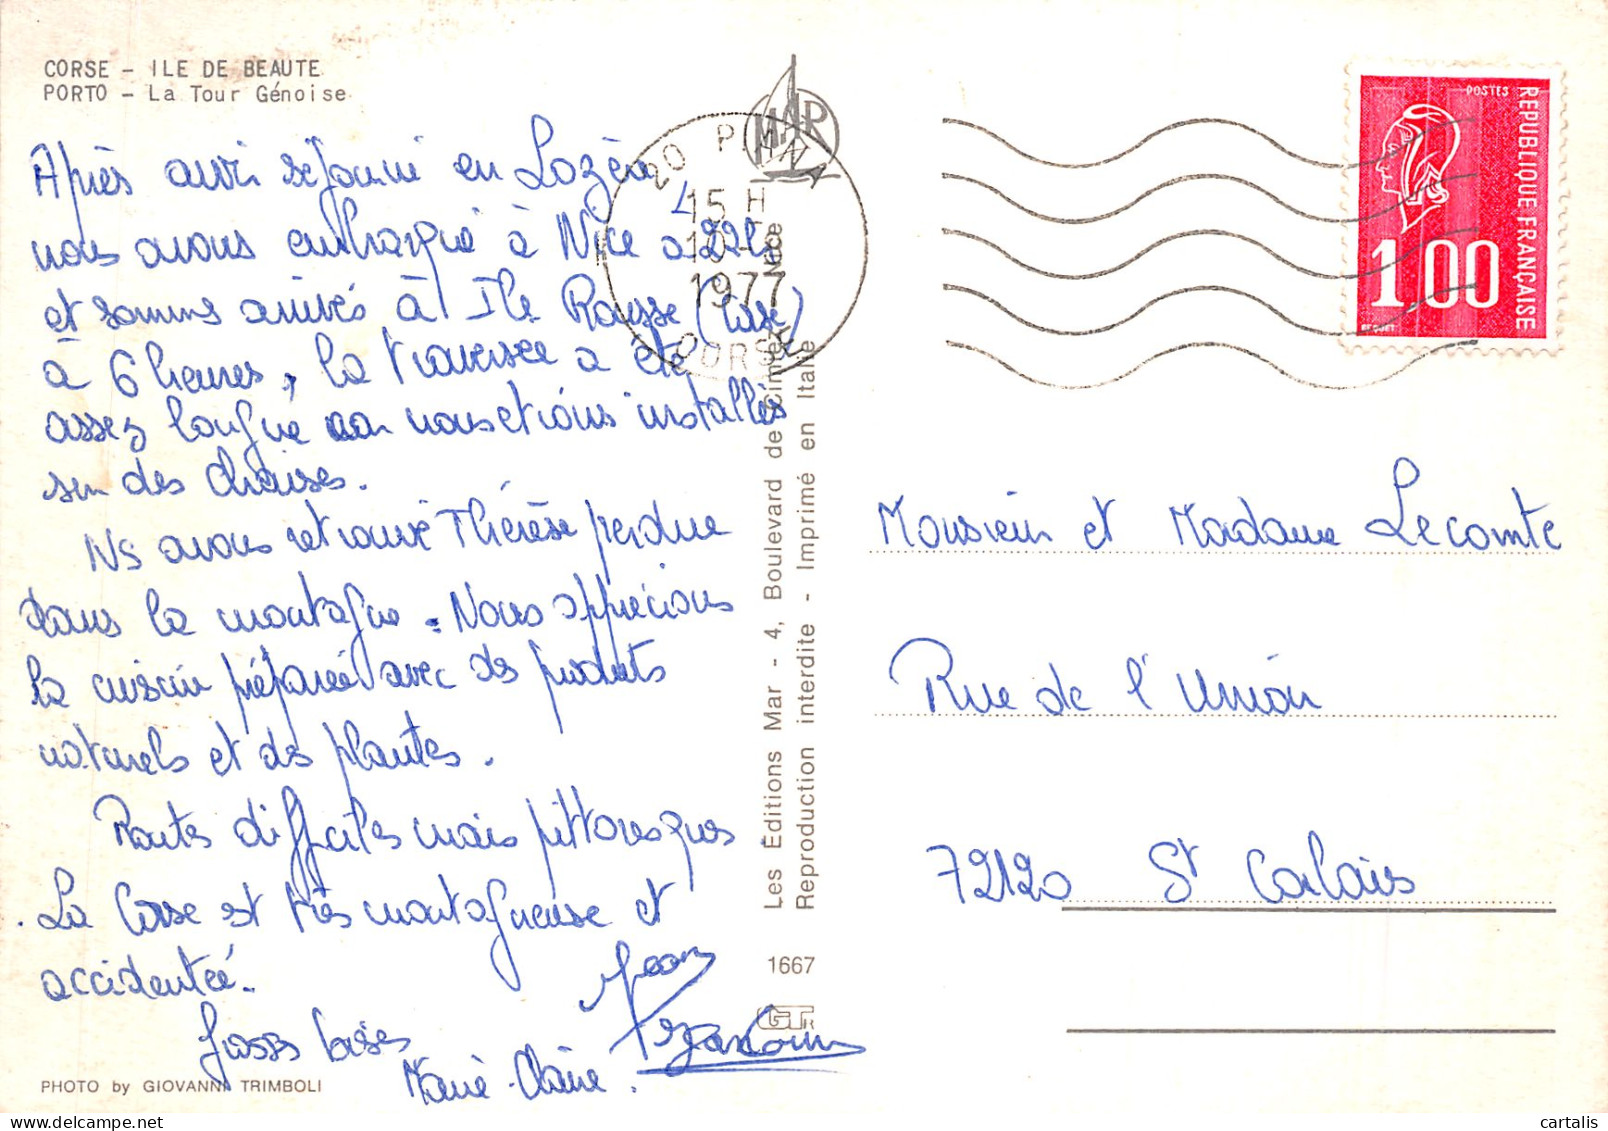 CORSE - ILE DE BEAUTE
PORTO - La Tour Génoise
Après avoir séjourné en Lozère
nous avons embarqué à Nice à 22h
et sommes arrivés à Ile Rousse (Corse)
à 6 heures, la traversée a été
assez longue car nous étions installés
sur des chaises.
Ns avons retrouvé Thérèse perdue
dans la montagne. Nous apprécions
la cuisine préparée avec des produits
naturels et des plantes.
Routes difficiles mais pittoresques
. La Corse est très montagneuse et
accidentée.
Grosses bises
Marie-Claire.
Jean
PHOTO by GIOVANNI TRIMBOLI
MAR
20 PIANA
15 H
1977
CORSE
Les Éditions Mar - 4, Boulevard de Cimiez Nice
Reproduction interdite - Imprimé en Italie
1667
POSTES
REPUBLIQUE FRANÇAISE
1,00
BEQUET
Monsieur et Madame Lecomte
Rue de l'Union
72120 St Calais
cartalis